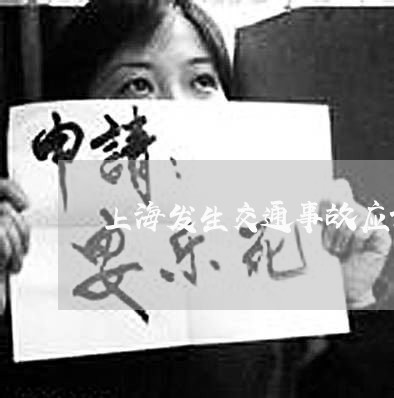 申請：
上海发生交通事故应
安乐死